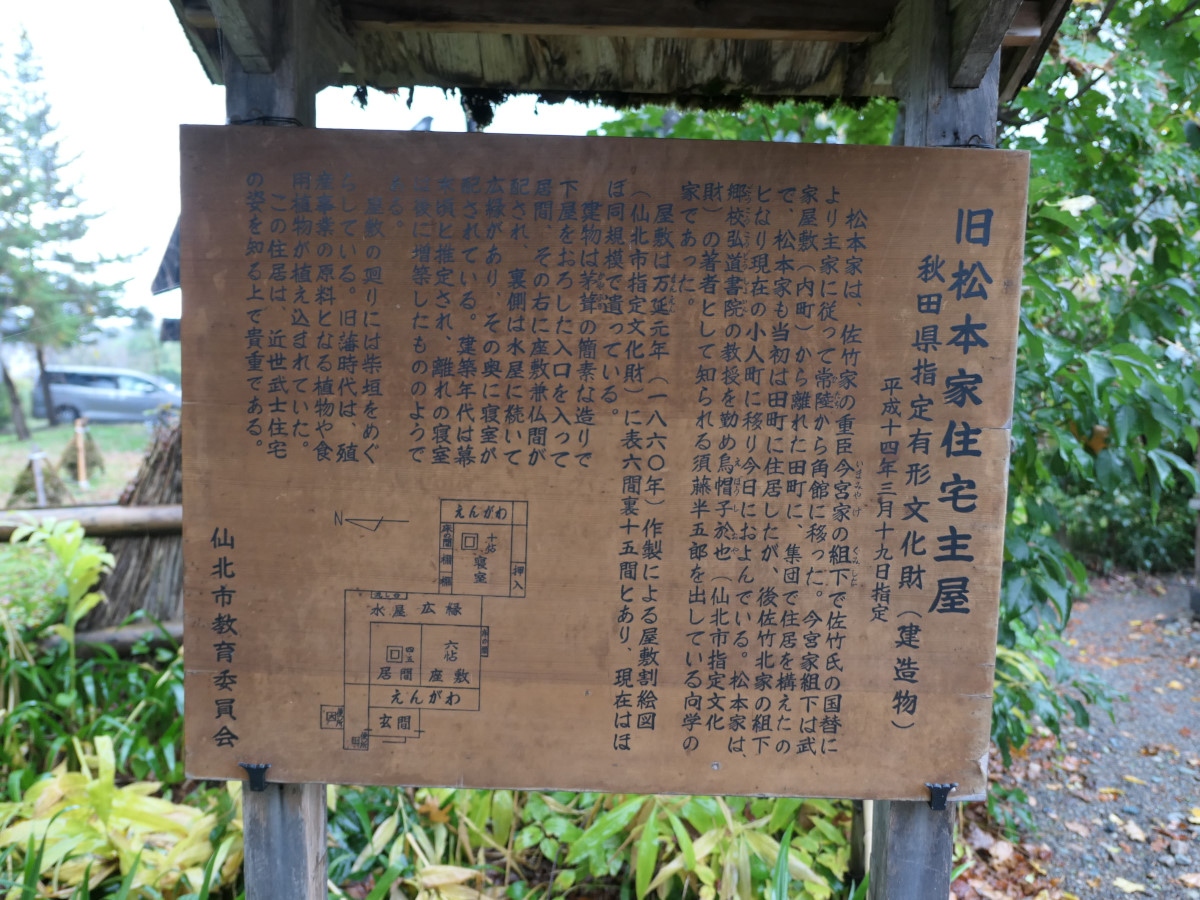 旧松本家住宅主屋
秋田県指定有形文化財（建造物）
平成十四年三月十九日指定
松本家は、佐竹家の重臣今宮家の組下で佐竹氏の国替に
より主家に従って常陸から角館に移った。今宮家組下は武
家屋敷（内町）から離れた田町に、集団で住居を構えたの
で、松本家も当初は田町に住居したが、後佐竹北家の組下
となり現在の小人町に移り今日におよんでいる。松本家は、
郷校弘道書院の教授を勤め烏帽子於也（仙北市指定文化
財）の著者として知られる須藤半五郎を出している向学の
家であった。
屋敷は万延元年（一八六〇年）作製による屋敷割絵図
（仙北市指定文化財）に表六間裏十五間とあり、現在はほ
ぼ同規模で遺っている。
建物は茅葺の簡素な造りで
下屋をおろした入口を入って
居間、その右に座敷兼仏間が
配され、裏側は水屋に続いて
広縁があり、その奥に寝室が
配されている。建築年代は幕
末頃と推定され、離れの寝室
は後に増築したもののようで
ある。
屋敷の周りには柴垣をめぐ
らしている。旧藩時代は、殖
産事業の原料となる植物や食
用植物が植え込まれていた。
この住居は、近世武士住宅
の姿を知る上で貴重である。
仙北市教育委員会
N
えんがわ
床の間
棚
棚
十帖
寝室
押入
流し台
水屋
広縁
四五
居間
六帖
座敷
えんがわ
玄関